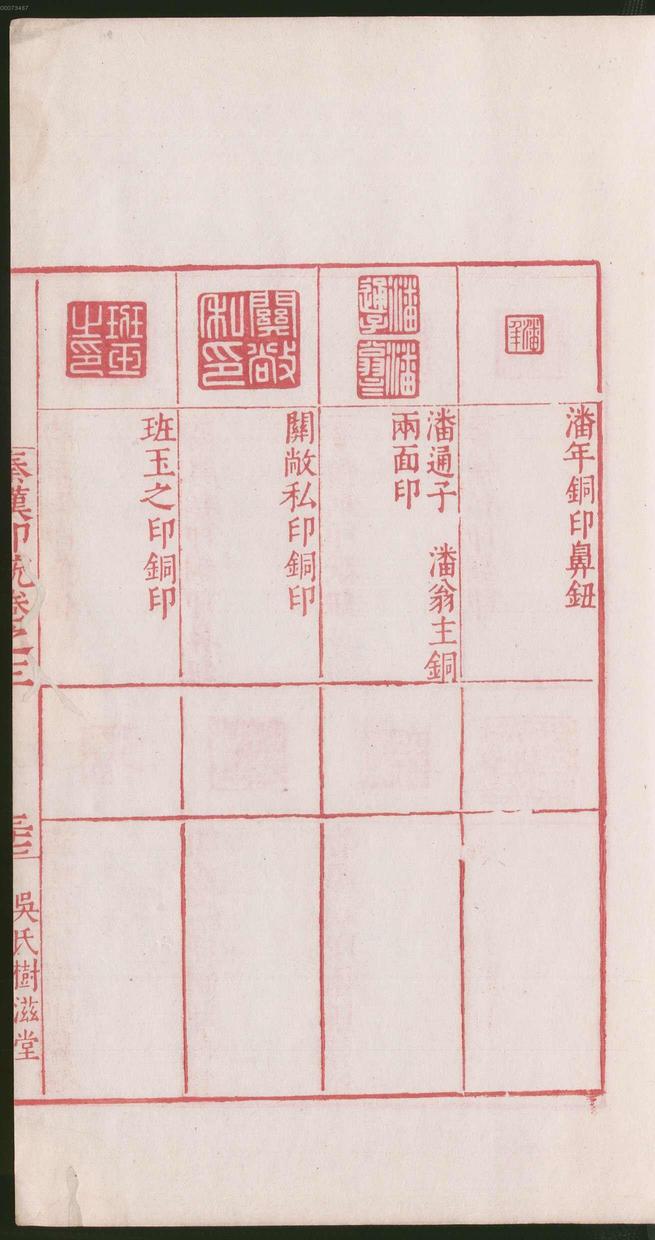 00073467
潘年
潘年銅印鼻鈕
潘通子
潘翁主
潘通子 潘翁主銅
兩面印
關敞私印
關敞私印銅印
班玉之印
班玉之印銅印
秦漢印統卷之三
吳氏樹滋堂